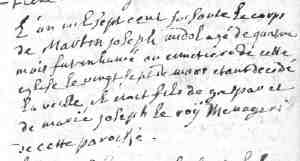 L'an mil sept cent soixante le corps
de Martin joseph agé de quatre
mois fut enhumé au cimetiére de cette
eglise le vingt sept de mars etant decedé
la veille il etoit fils de gaspar et
de marie joseph le roy Menageri
de cette paroisse.